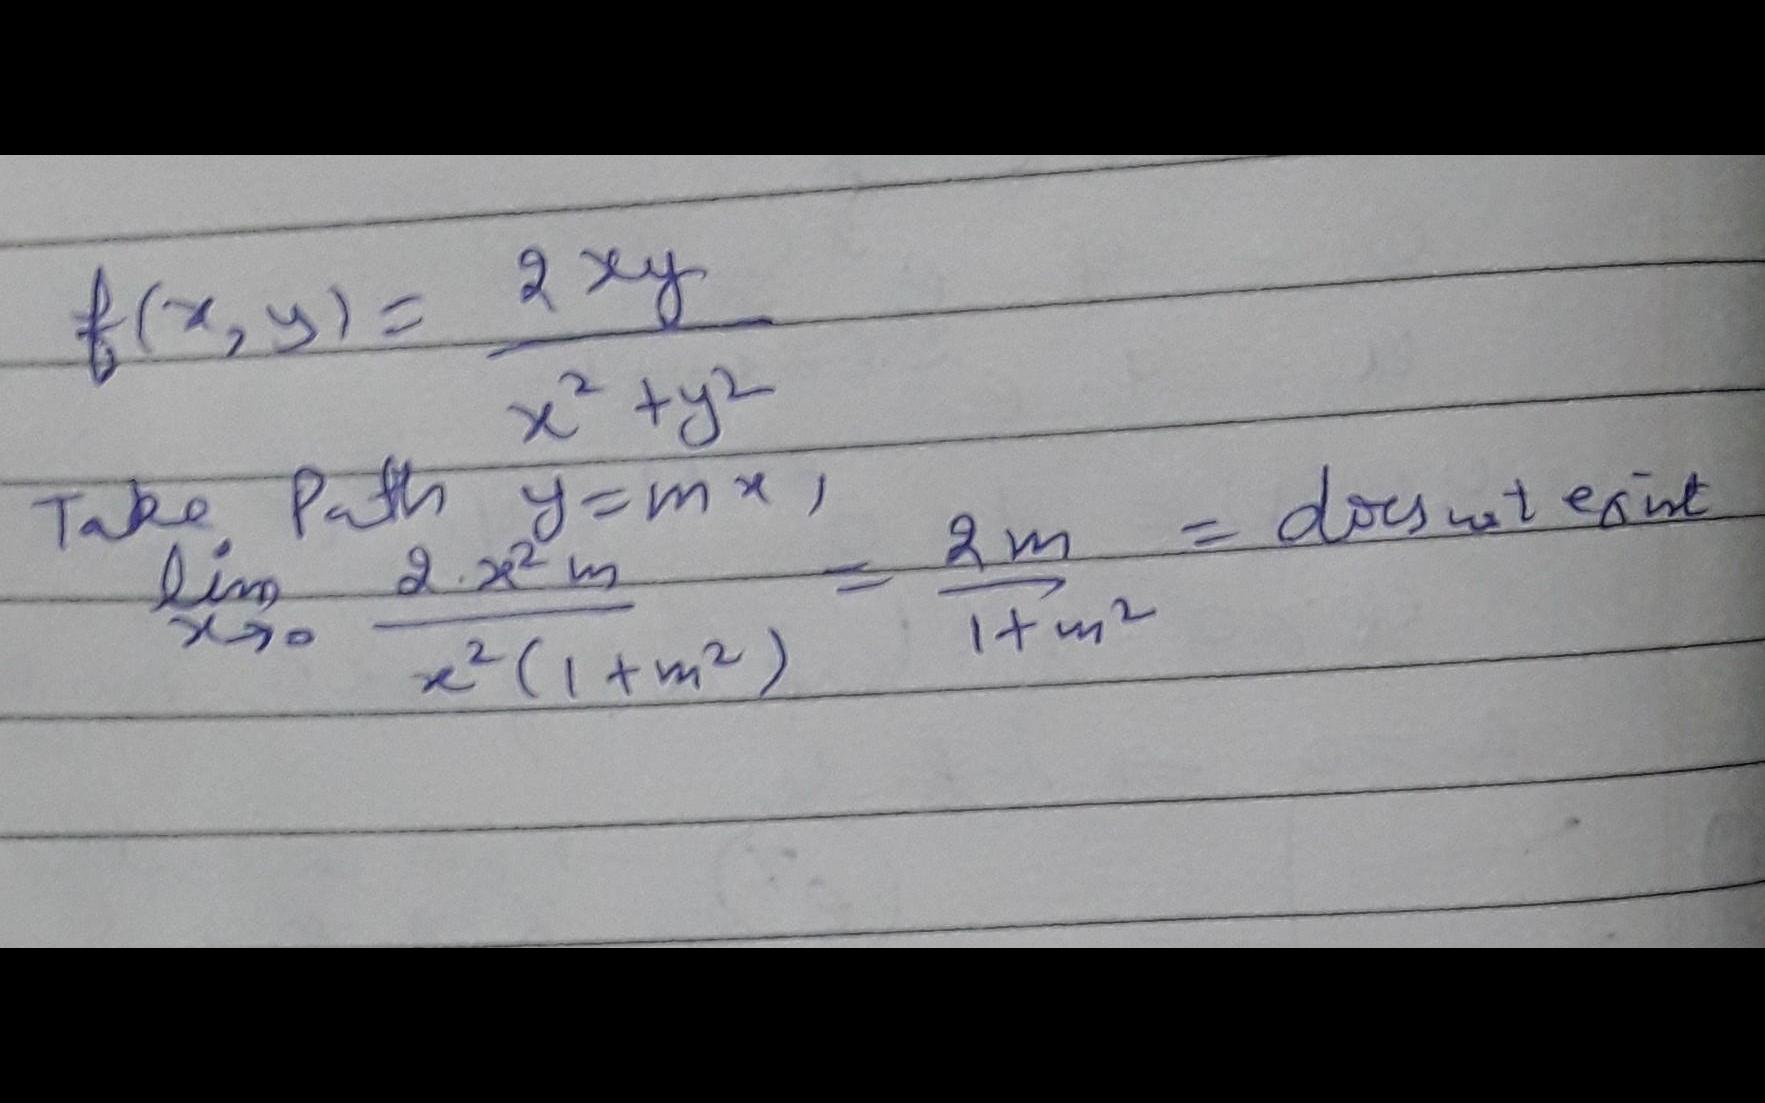 f(x, y) = 2xy / x² + y²
Take Path y = mx,
lim x→0 2·x²m / x²(1 + m²) = 2m / 1 + m² = does not exist